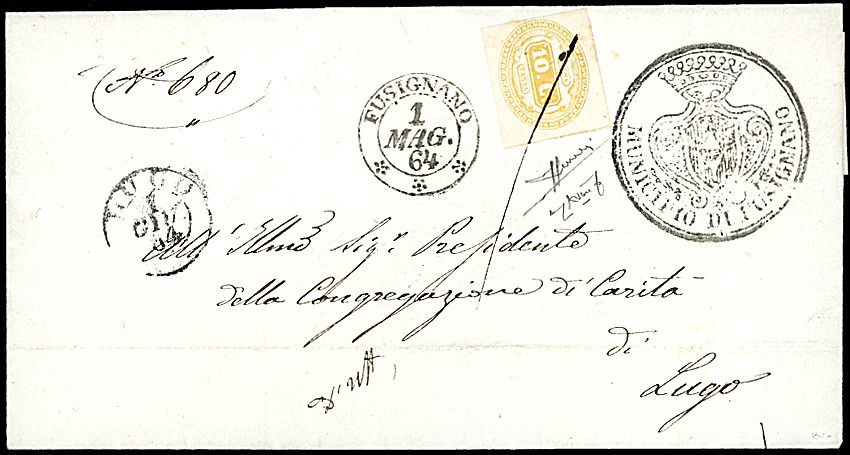 Nº 680
FUSIGNANO
1
MAG.
64
10. C
MUNICIPIO DI FUSIGNANO
LUGO
All' Illmo Sigr. Presidente
della Congregazione di Carità
di
Lugo